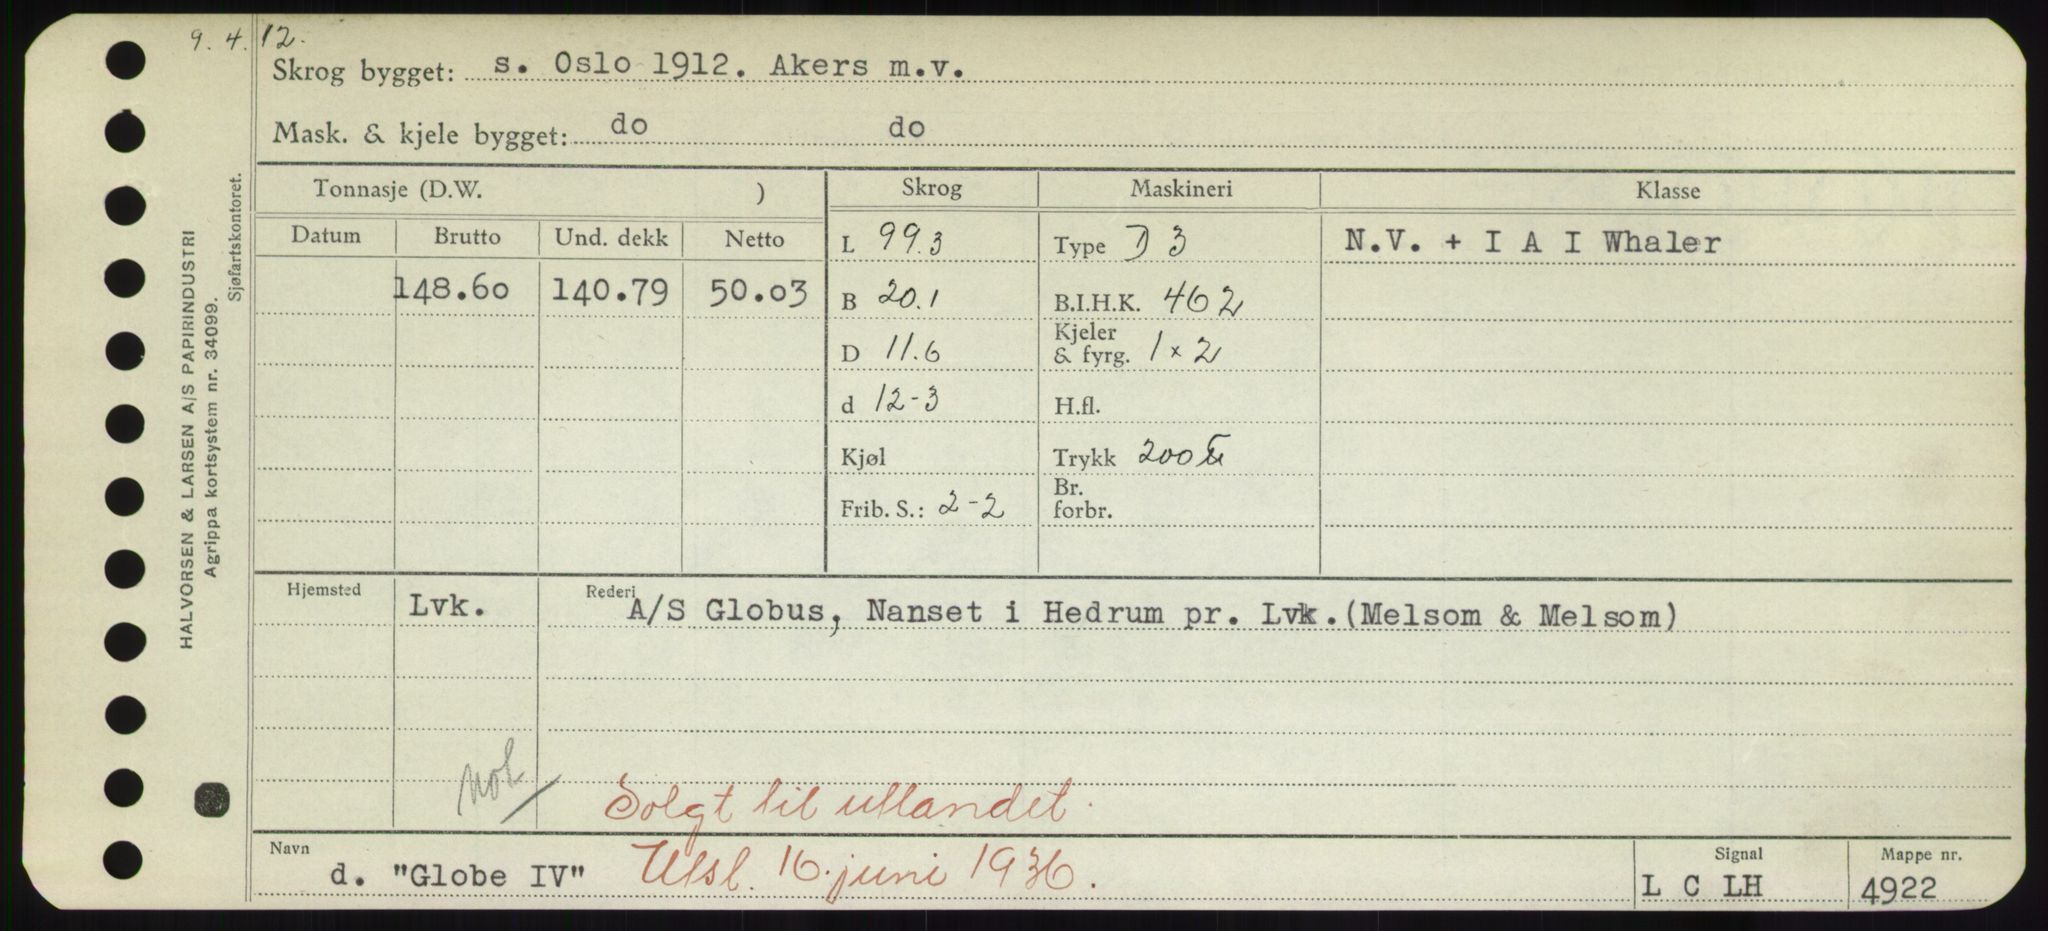 9. 4. 12.
Skrog bygget: s. Oslo 1912. Akers m.v.
Mask. & kjele bygget: do do
Tonnasje (D.W. ) Skrog Maskineri Klasse
Datum Brutto Und. dekk Netto L 99.3 Type D 3 N.V. + I A I Whaler
148.60 140.79 50.03 B 20.1 B.I.H.K. 462
D 11.6 Kjeler & fyrg. 1 x 2
d 12-3 H.fl.
Kjøl Trykk 200 ℔
Frib. S.: 2-2 Br. forbr.
Hjemsted Lvk. Rederi A/S Globus, Nanset i Hedrum pr. Lvk.(Melsom & Melsom)
not
Solgt til utlandet.
Navn d. "Globe IV" Utsl. 16. juni 1936. Signal L C LH Mappe nr. 4922
HALVORSEN & LARSEN A/S PAPIRINDUSTRI
Agrippa kortsystem nr. 34099.
Sjøfartskontoret.